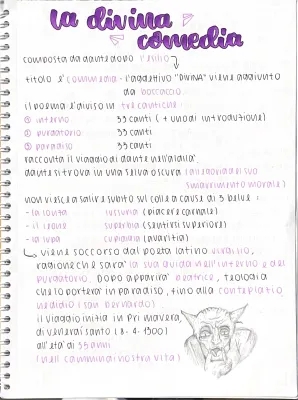 la divina
comedia
composta da dante dopo l'esilio
titolo è commedia - l'aggettivo "DIVINA" viene aggiunto
da boccaccio
il poema è diviso in tre cantiche:
① inferno 33 canti (+ uno di introduzione)
② purgatorio 33 canti
③ paradiso 33 canti
racconta il viaggio di dante nell'aldilà.
dante si trova in una selva oscura (allegoria del suo
smarrimento morale)
non riesce a salire subito sul colle a causa di 3 belve:
- la lonza lussuria (piacere carnale)
- il leone superbia (sentirsi superiore)
- la lupa cupidigia (avarizia)
viene soccorso dal poeta latino virgilio,
ragione che sarà la sua guida nell'inferno e del
purgatorio. Dopo apparirà beatrice, teologia
che lo porterà in paradiso, fino alla contemplatio
ne di dio (san bernardo)
il viaggio inizia in primavera,
di venerdì santo (8-4-1300)
all'età di 35 anni
(nell cammin di nostra vita)